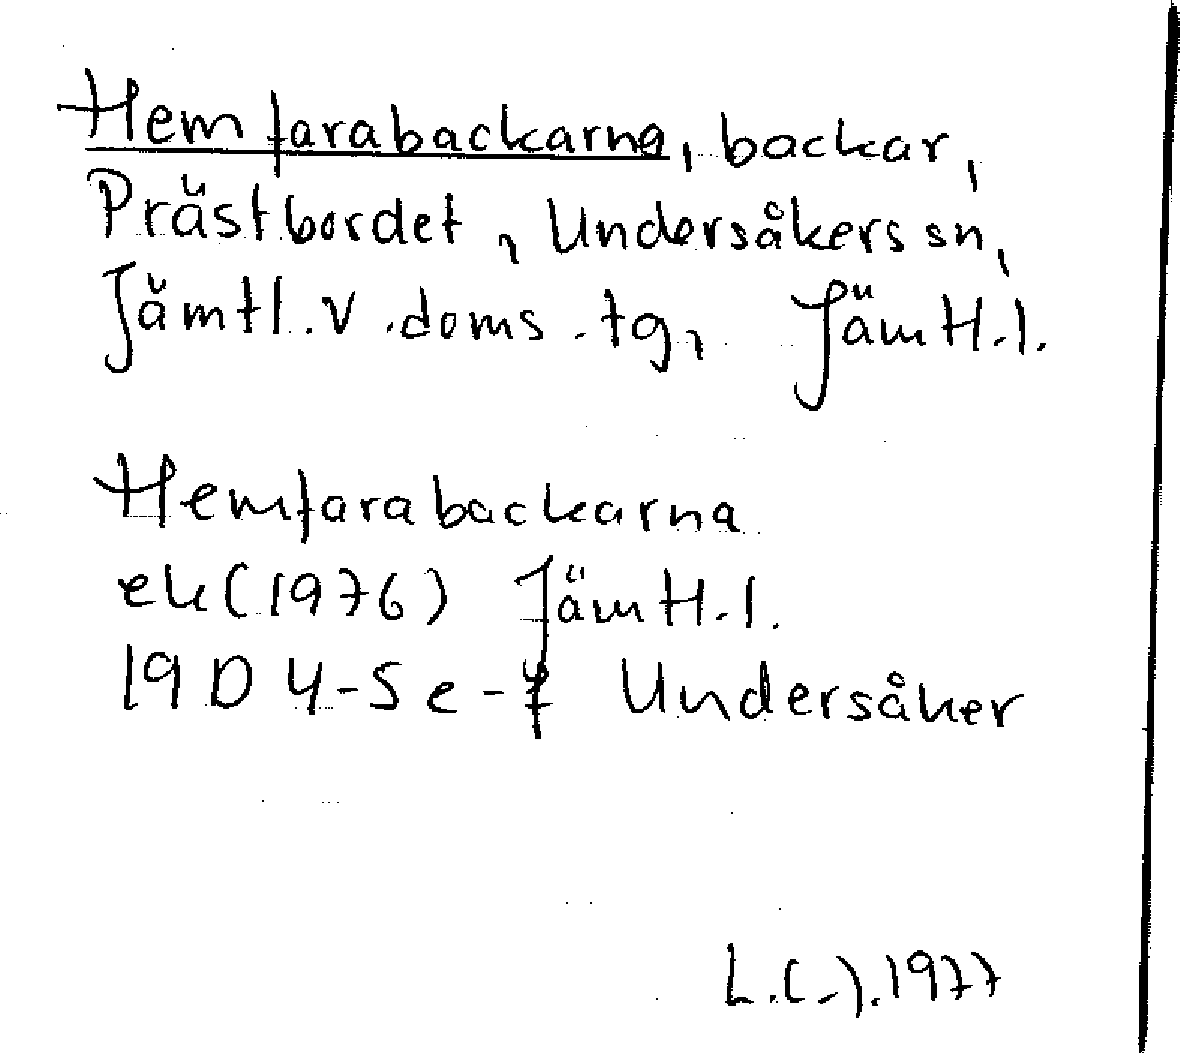 Hemfarabackarna, backar,
Prästbordet, Undersåkers sn,
Jämtl. v. doms. tg, Jämtl. l.
Hemfarabackarna
ek (1976) Jämtl. l.
19D 4-5 e-f Undersåker
L.(-).1977